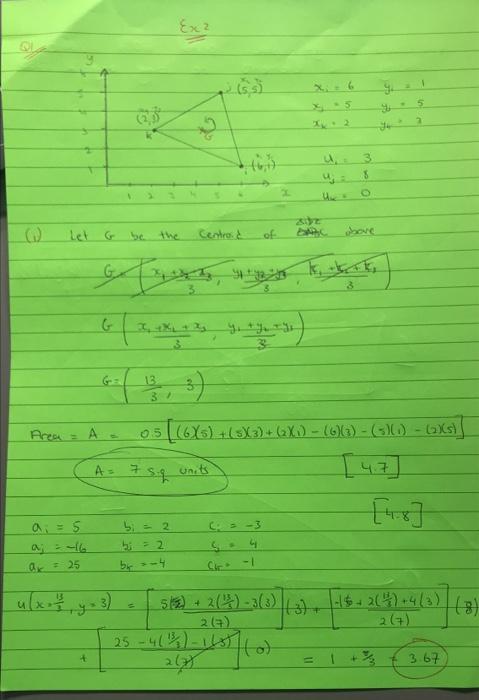 Ex 2
Q1
y
6
5
4
3
2
1
1 2 3 4 5 6 x
j (5,5)
(2,3)
k
G
i (6,1)
xi = 6 yi = 1
xj = 5 yj = 5
xk = 2 yk = 3
ui = 3
uj = 8
uk = 0
(1) Let G be the Centroid of above
G = ( x1 + x2 + x3 / 3 , y1 + y2 + y3 / 3 , )
G ( x1 + x2 + x3 / 3 , y1 + y2 + y3 / 3 )
G = ( 13/3 , 3 )
Area = A = 0.5 [ (6)(5) + (5)(3) + (2)(1) - (6)(3) - (5)(1) - (2)(5) ]
A = 7 sq units [4.7]
[4.8]
ai = 5 bi = 2 ci = -3
aj = -16 bj = 2 cj = 4
ak = 25 bk = -4 ck = -1
u(x = 13/3, y = 3) = [ 5 + 2(13/3) - 3(3) / 2(7) ] (3) + [ -16 + 2(13/3) + 4(3) / 2(7) ] (8)
+ [ 25 - 4(13/3) - 1(3) / 2(7) ] (0) = 1 + 8/3 = 3.67